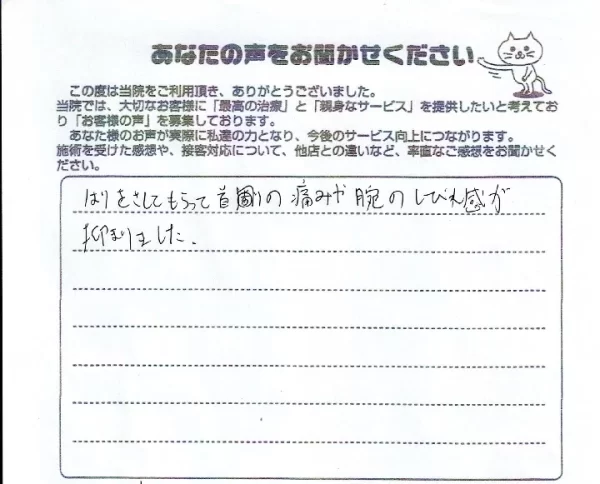 あなたの声をお聞かせください
この度は当院をご利用頂き、ありがとうございました。
当院では、大切なお客様に「最高の治療」と「親身なサービス」を提供したいと考えてお
り「お客様の声」を募集しております。
あなた様のお声が実際に私達の力となり、今後のサービス向上につながります。
施術を受けた感想や、接客対応について、他店との違いなど、率直なご感想をお聞かせく
ださい。
はりをさしてもらって首周りの痛みや腕のしびれ感が
抑まりました。